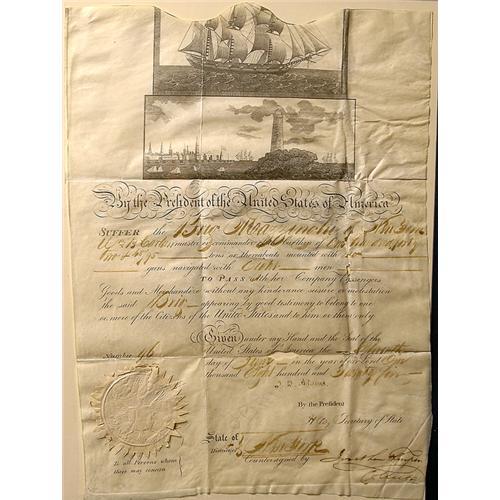 By the President of the United States of America
SUFFER the Brig of New York
master or commander of the burthen of One hundred
tons or thereabouts mounted with no
guns navigated with Eight men
TO PASS with her Company Passengers
Goods and Merchandize without any hinderance seisure or molestation
the said Brig appearing by good testimony to belong to one
or more of the Citizens of the United States and to him or them only.
Given under my Hand and the Seal of the
United States of America the
day of in the year of our Lord One
thousand Eight hundred and Twenty five
Number 46
J. Q. Adams
By the President
H Clay Secretary of State
State of
District of New York
Countersigned by
To all Persons whom
these may concern